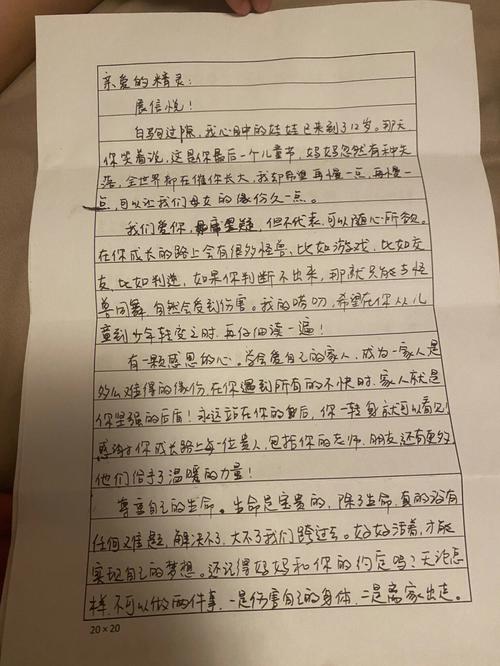 亲爱的精灵：
展信悦！
白驹过隙，我心目中的娃娃已来到了12岁。那天
你笑着说，这是你最后一个儿童节，妈妈忽然有种失
落，全世界都在催你长大，我却希望再慢一点，再慢一
点，可以让我们母女的缘份久一点。
我们爱你，毋庸置疑，但不代表可以随心所欲。
在你成长的路上会有很多怪兽，比如游戏，比如交
友，比如判逆，如果你判断不出来，那就只能与怪
兽同舞，自然会受到伤害。我的唠叨，希望在你从儿
童到少年转变之时，再仔细读一遍！
有一颗感恩的心。学会爱自己的家人，成为一家人是
多么难得的缘份，在你遇到所有的不快时，家人就是
你坚强的后盾！永远站在你的背后，你一转身就可以看见！
感谢你成长路上每一位贵人，包括你的老师、朋友还有更多
他们给予了温暖的力量！
尊重自己的生命。生命是宝贵的，除了生命，真的没有
任何又难题，解决不了，大不了我们跨过去。好好活着，才能
实现自己的梦想。还记得妈妈和你的约定吗？无论怎
样，不可以做两件事，一是伤害自己的身体，二是离家出走。
20×20